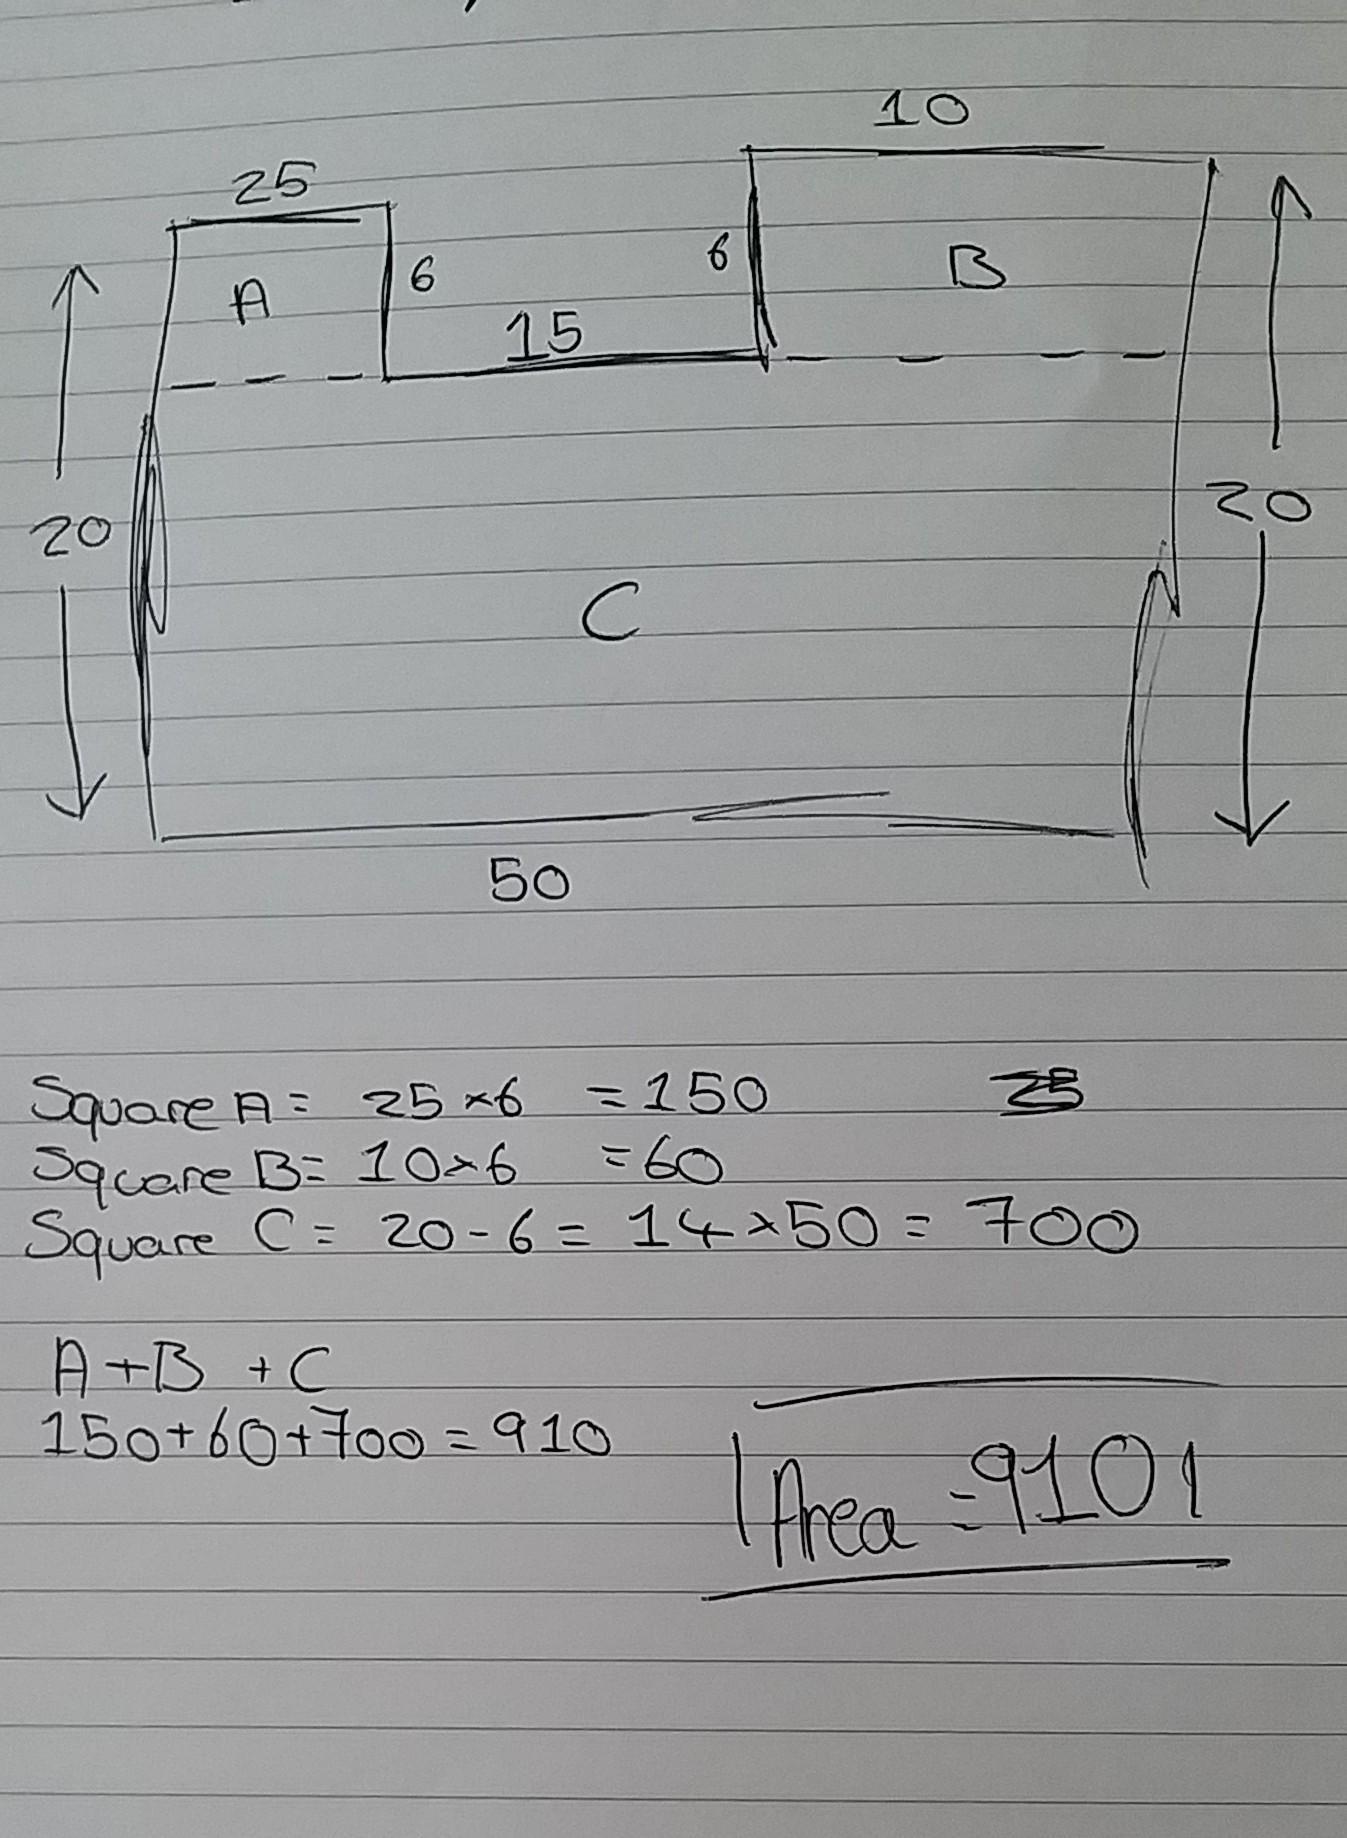 10
25
A
6
6
B
15
20
20
C
50
Square A = 25 × 6 = 150
Square B = 10 × 6 = 60
Square C = 20 - 6 = 14 × 50 = 700
A + B + C
150 + 60 + 700 = 910
Area = 910